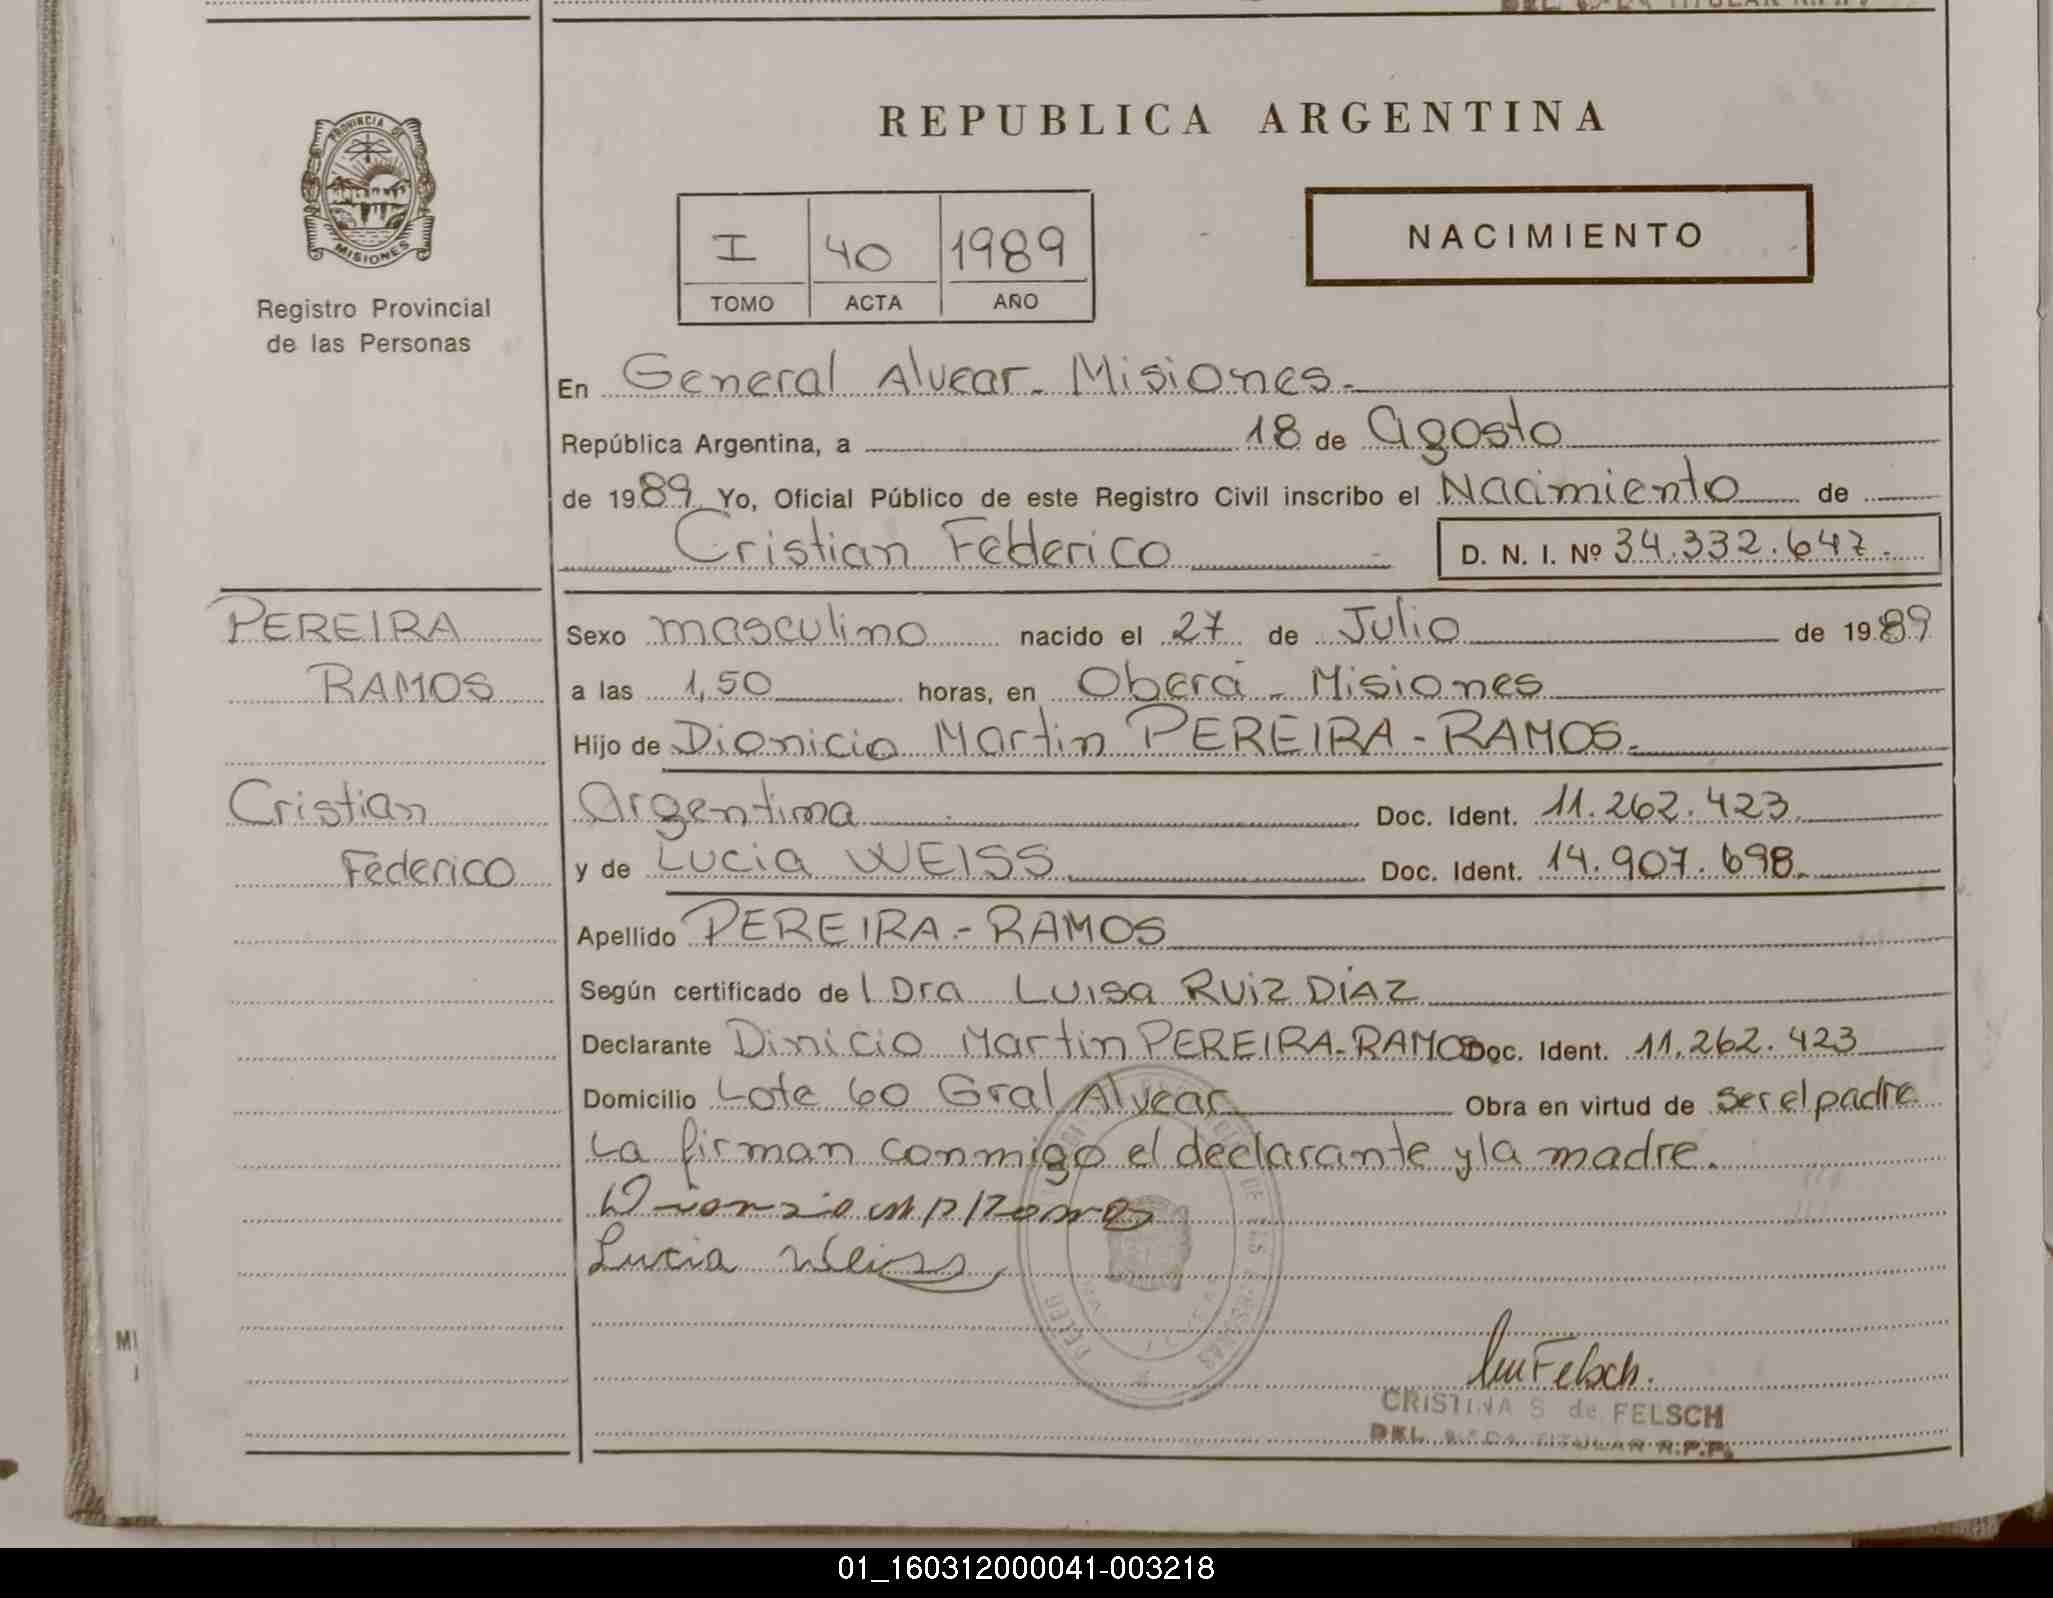 REPUBLICA ARGENTINA
PROVINCIA DE
MISIONES
Registro Provincial
de las Personas
I 40 1989
TOMO ACTA AÑO
NACIMIENTO
En General Alvear - Misiones.-
República Argentina, a 18 de Agosto
de 1989 Yo, Oficial Público de este Registro Civil inscribo el Nacimiento de
Cristian Federico
D. N. I. Nº 34.332.647.
PEREIRA
RAMOS
Cristian
Federico
Sexo masculino nacido el 27 de Julio de 1989
a las 1,50 horas, en Oberá - Misiones
Hijo de Dionicio Martin PEREIRA - RAMOS.
Argentina Doc. Ident. 11.262.423
y de Lucia WEISS Doc. Ident. 14.907.698.
Apellido PEREIRA - RAMOS
Según certificado de l Dra Luisa RUIZ DÍAZ
Declarante Dinicio Martin PEREIRA-RAMOS Doc. Ident. 11.262.423
Domicilio Lote 60 Gral Alvear Obra en virtud de ser el padre
La firman conmigo el declarante y la madre.
Lucia Weiss
Felsch.
CRISTINA S de FELSCH
DEL TITULAR R.P.P.
01_160312000041-003218